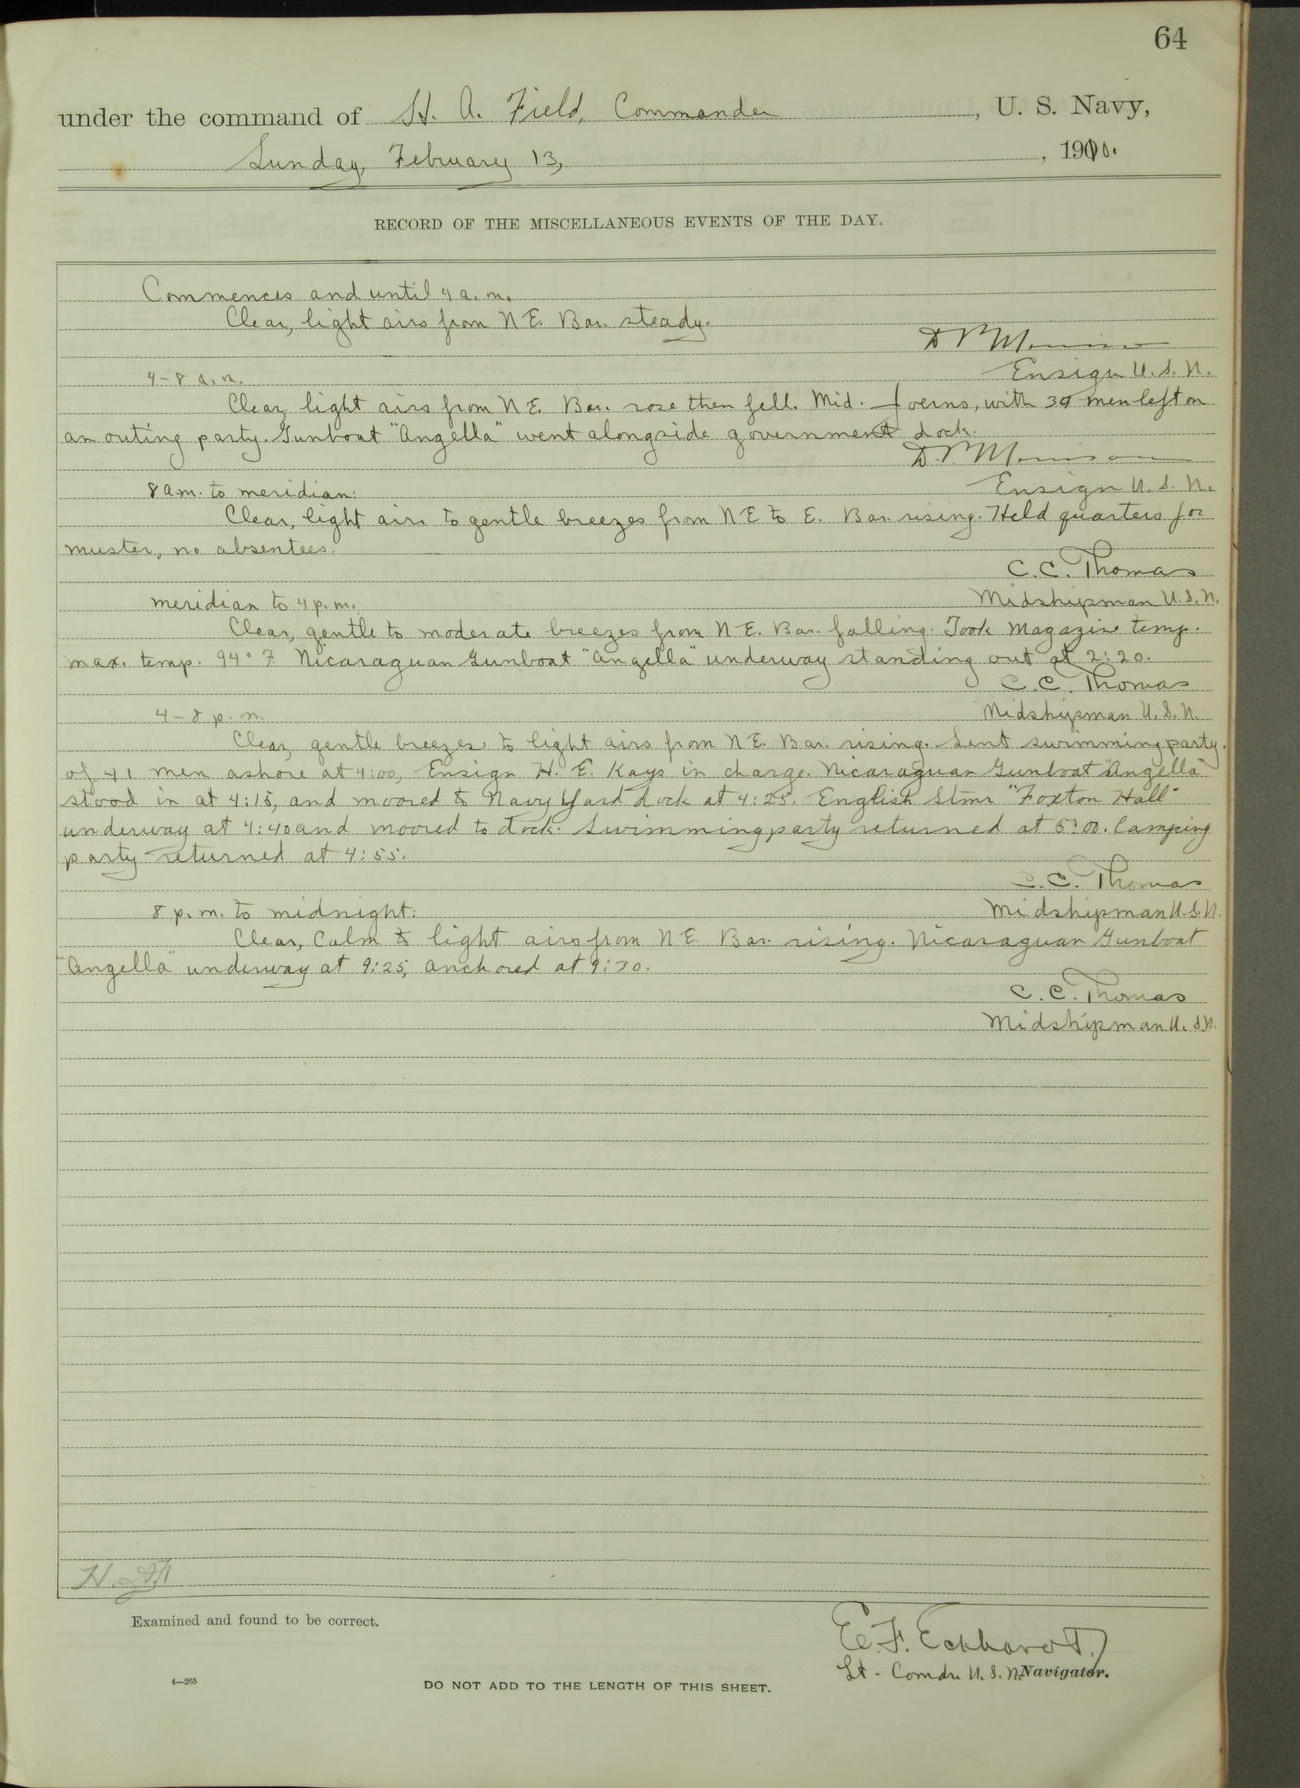 64
under the command of H. A. Field, Commander, U. S. Navy,
Sunday, February 13, , 1910.
RECORD OF THE MISCELLANEOUS EVENTS OF THE DAY.
Commences and until 4 a. m.
Clear, light airs from N E. Bar. steady.
Ensign U. S. N.
4-8 a. m.
Clear, light airs from N E. Bar. rose then fell. Mid. Joerns, with 39 men left on
an outing party. Gunboat "Angella" went alongside government dock.
Ensign U. S. N.
8 a m. to meridian:
Clear, light airs to gentle breezes from N E to E. Bar. rising. Held quarters for
muster, no absentees.
C. C. Thomas
Midshipman U. S. N.
meridian to 4 p. m.
Clear, gentle to moderate breezes from N E. Bar. falling. Took Magazine temp.
max. temp. 94° F. Nicaraguan Gunboat "Angella" underway standing out at 2:20.
C. C. Thomas
Midshipman U. S. N.
4-8 p. m.
Clear, gentle breezes to light airs from N E. Bar. rising. Sent swimming party
of 41 men ashore at 4:00, Ensign H. E. Kays in charge. Nicaraguan Gunboat "Angella"
stood in at 4:15, and moored to Navy Yard dock at 4:25. English Stmr "Foxton Hall"
underway at 4:40 and moored to dock. Swimming party returned at 5:00. Camping
party returned at 4:55.
C. C. Thomas
Midshipman U. S. N.
8 p. m. to midnight:
Clear, Calm to light airs from N E. Bar. rising. Nicaraguan Gunboat
"Angella" underway at 9:25, anchored at 9:30.
C. C. Thomas
Midshipman U. S. N.
Examined and found to be correct.
E. F. Eckhardt,
Lt-Comdr. U. S. N. Navigator.
4—265
DO NOT ADD TO THE LENGTH OF THIS SHEET.